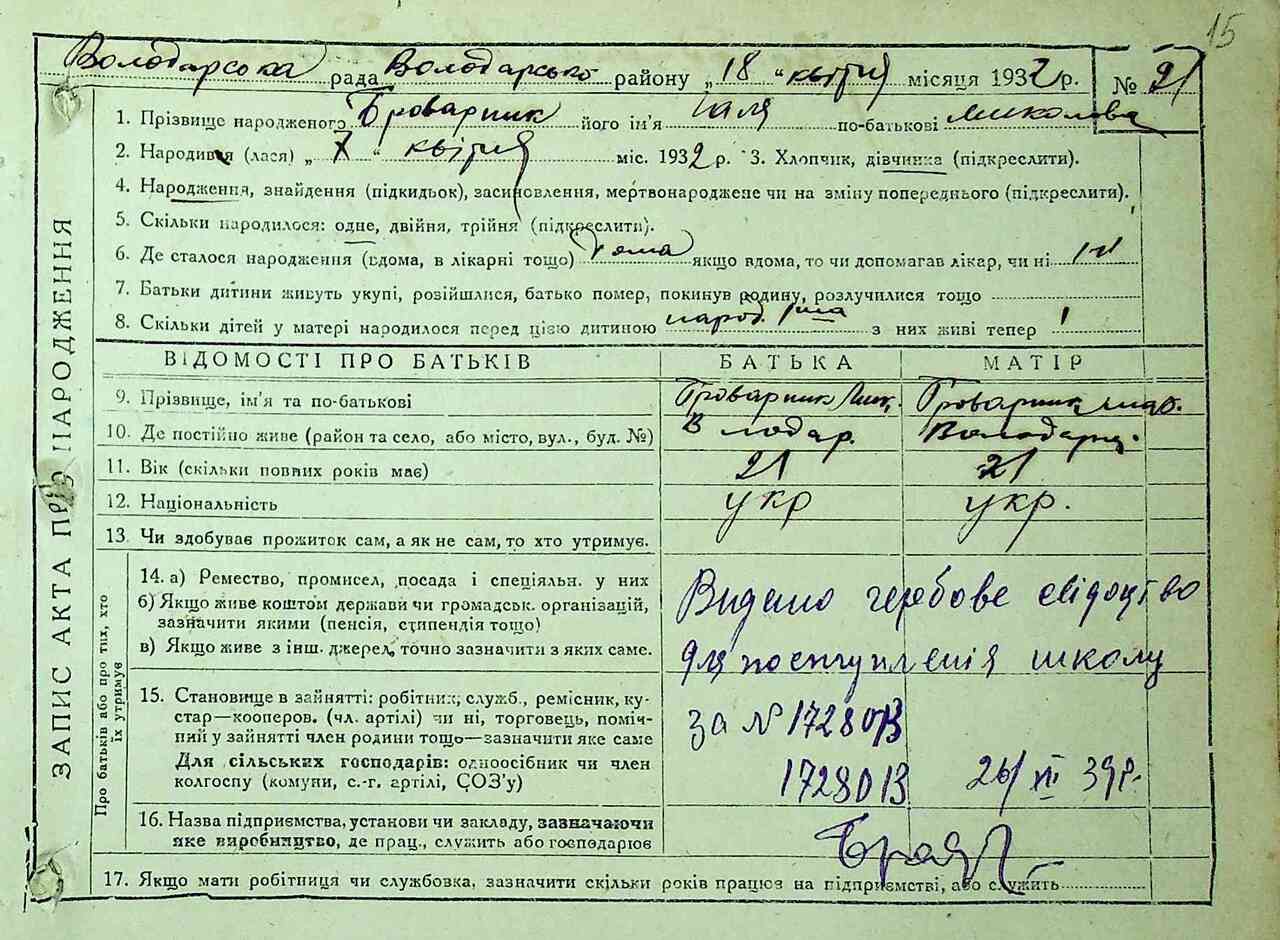 15
Володарська рада Володарсько району „18" квітня місяця 1932 р. № 21
1. Прізвище народженого Броварник його ім'я Галя по-батькові Миколаєва
2. Народився (лася) „7" квітня міс. 1932 р. 3. Хлопчик, дівчинка (підкреслити).
4. Народження, знайдення (підкидьок), засиновлення, мертвонароджене чи на зміну попереднього (підкреслити).
5. Скільки народилося: одне, двійня, трійня (підкреслити).
6. Де сталося народження (вдома, в лікарні тощо) дома якщо вдома, то чи допомагав лікар, чи ні ні
7. Батьки дитини живуть укупі, розійшлися, батько помер, покинув родину, розлучилися тощо
8. Скільки дітей у матері народилося перед цією дитиною народ. з них живі тепер 1
ЗАПИС АКТА ПРО НАРОДЖЕННЯ
ВІДОМОСТІ ПРО БАТЬКІВ БАТЬКА МАТІР
9. Прізвище, ім'я та по-батькові Броварник Мик. Броварник
10. Де постійно живе (район та село, або місто, вул., буд. №) Володар. Володарц.
11. Вік (скільки повних років має) 21 21
12. Національність укр укр.
13. Чи здобуває прожиток сам, а як не сам, то хто утримує.
Про батьків або про тих, хто їх утримує
14. а) Ремество, промисел, посада і спеціяльн. у них
б) Якщо живе коштом держави чи громадськ. організацій,
зазначити якими (пенсія, стипендія тощо)
в) Якщо живе з інш. джерел, точно зазначити з яких саме.
Видано гербове свідоцтво
для поступленія школу
за № 172801В
172801В 26/XII 39р.
15. Становище в зайнятті: робітник, служб., ремісник, ку-
стар—кооперов. (чл. артілі) чи ні, торговець, поміч-
ний у зайнятті член родини тощо—зазначити яке саме
Для сільських господарів: одноосібник чи член
колгоспу (комуни, с.-г. артілі, СОЗ'у)
16. Назва підприємства, установи чи закладу, зазначаючи
яке виробництво, де прац., служить або господарює
17. Якщо мати робітниця чи службовка, зазначити скільки років працює на підприємстві, або служить